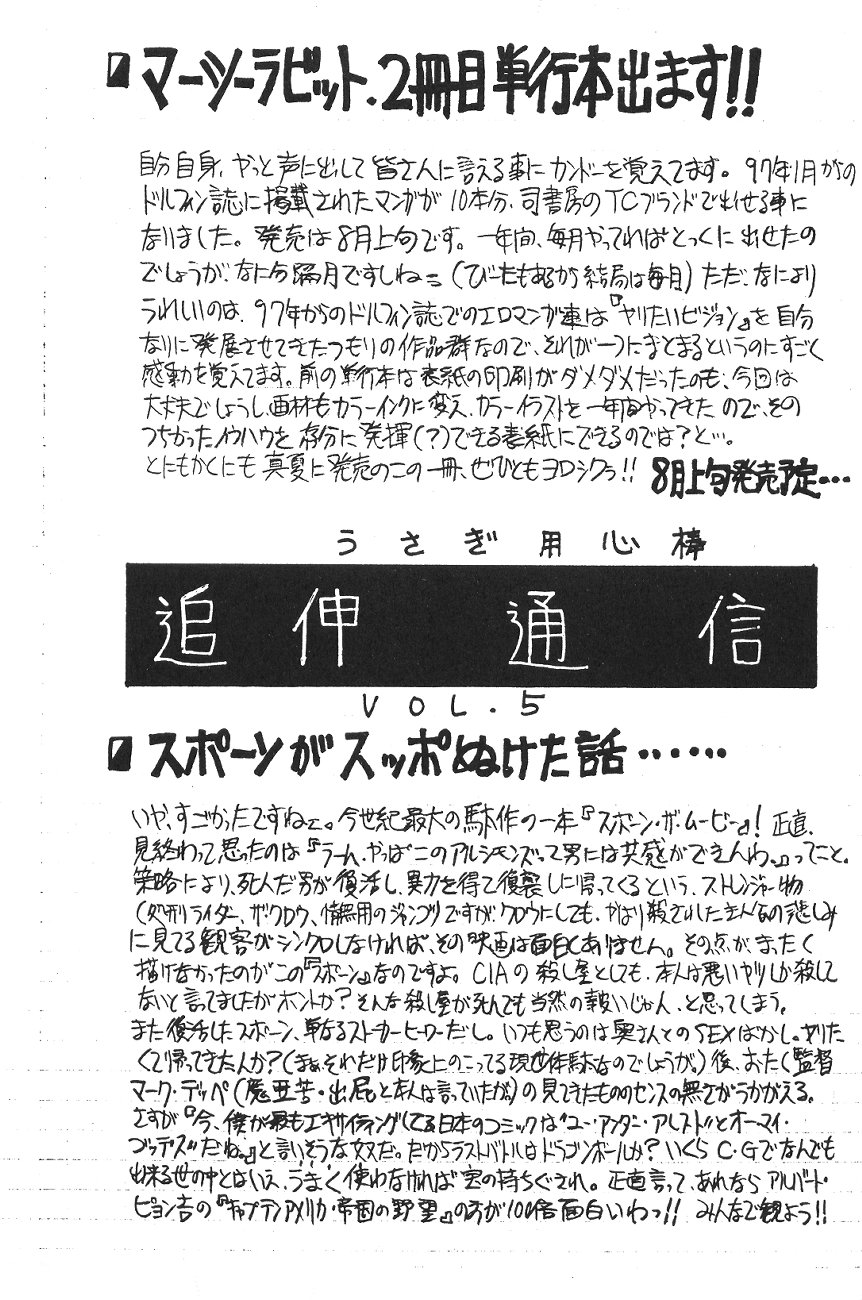 マーシーラビット.2冊目単行本出ます!!
自分自身、やっと声に出して皆さんに言える事にカンドーを覚えてます。97年1月からの
ドルフィン誌に掲載されたマンガが10本分、司書房のTCブランドで出せる事に
なりました。発売は8月上旬です。一年間、毎月やってればとっくに出せたの
でしょうが、なに分隔月ですしね(びーたもあるから結局は毎月)ただ、なにより
うれしいのは、97年からのドルフィン誌でのエロマンガ道は『ヤリたいビジョン』を自分
なりに発展させてきたつもりの作品群なので、それが一つにまとまるというのにすごく
感動を覚えてます。前の単行本は表紙の印刷がダメダメだったのも、今回は
大丈夫でしょうし、画材もカラーインクに変え、カラーイラストを一年間やってきたので、その
つちかったノウハウを存分に発揮(?)できる表紙にできるのでは?と…。
とにもかくにも真夏に発売のこの一冊、ぜひともヨロシクゥ!! 8月上旬発売予定…
うさぎ用心棒
追伸通信
VOL.5
スポーンがスッポぬけた話……
いや、すごかったですねェ。今世紀最大の駄作の一本『スポーン・ザ・ムービー』! 正直、
見終わって思ったのは『うーん、やっぱこのアルシモンズって男には共感ができんわ。』ってこと。
策略により、死んだ男が復活し、暴力を得て復讐しに帰ってくるという、ストレンジャー物
(処刑ライダー、ザ・クロウ、情無用のジャンゴ)ですが、クロウにしても、やはり殺された主人公の悲しみ
に見てる観客がシンクロしなければ、その映画は面白くありません。その点が、まったく
描けなかったのがこの『スポーン』なのですよ。CIAの殺し屋としても、本人は悪いヤツしか殺して
ないと言ってましたがホントか?そんな殺し屋が死んでも当然の報いじゃん、と思ってしまう。
また復活したスポーン、単なるストーカーヒーローだし。いつも思うのは奥さんとのSEXばかし。ヤリた
くて帰ってきたんか?(まぁそれだけ印象上のこってる現世体験なのでしょうが。)後、おたく監督
マーク・デッペ(魔亜苦・出屁と本人は言っていたが)の見てきたもののセンスの無さがうかがえる。
さすが『今、僕が最もエキサイティングしてる日本のコミックは"ユー・アンダー・アレスト"とオーマイ・
ゴッデス"だね。』と言いそうな奴だ。だからラストバトルはドラゴンボールか?いくらC・Gでなんでも
出来る世の中とはいえ、うまく使わなければ宝の持ちぐされ。正直言って、あれならアルバート・
ピョン吉の『キャプテンアメリカ・帝国の野望』の方が100倍面白いわっ!! みんなで観よう!!